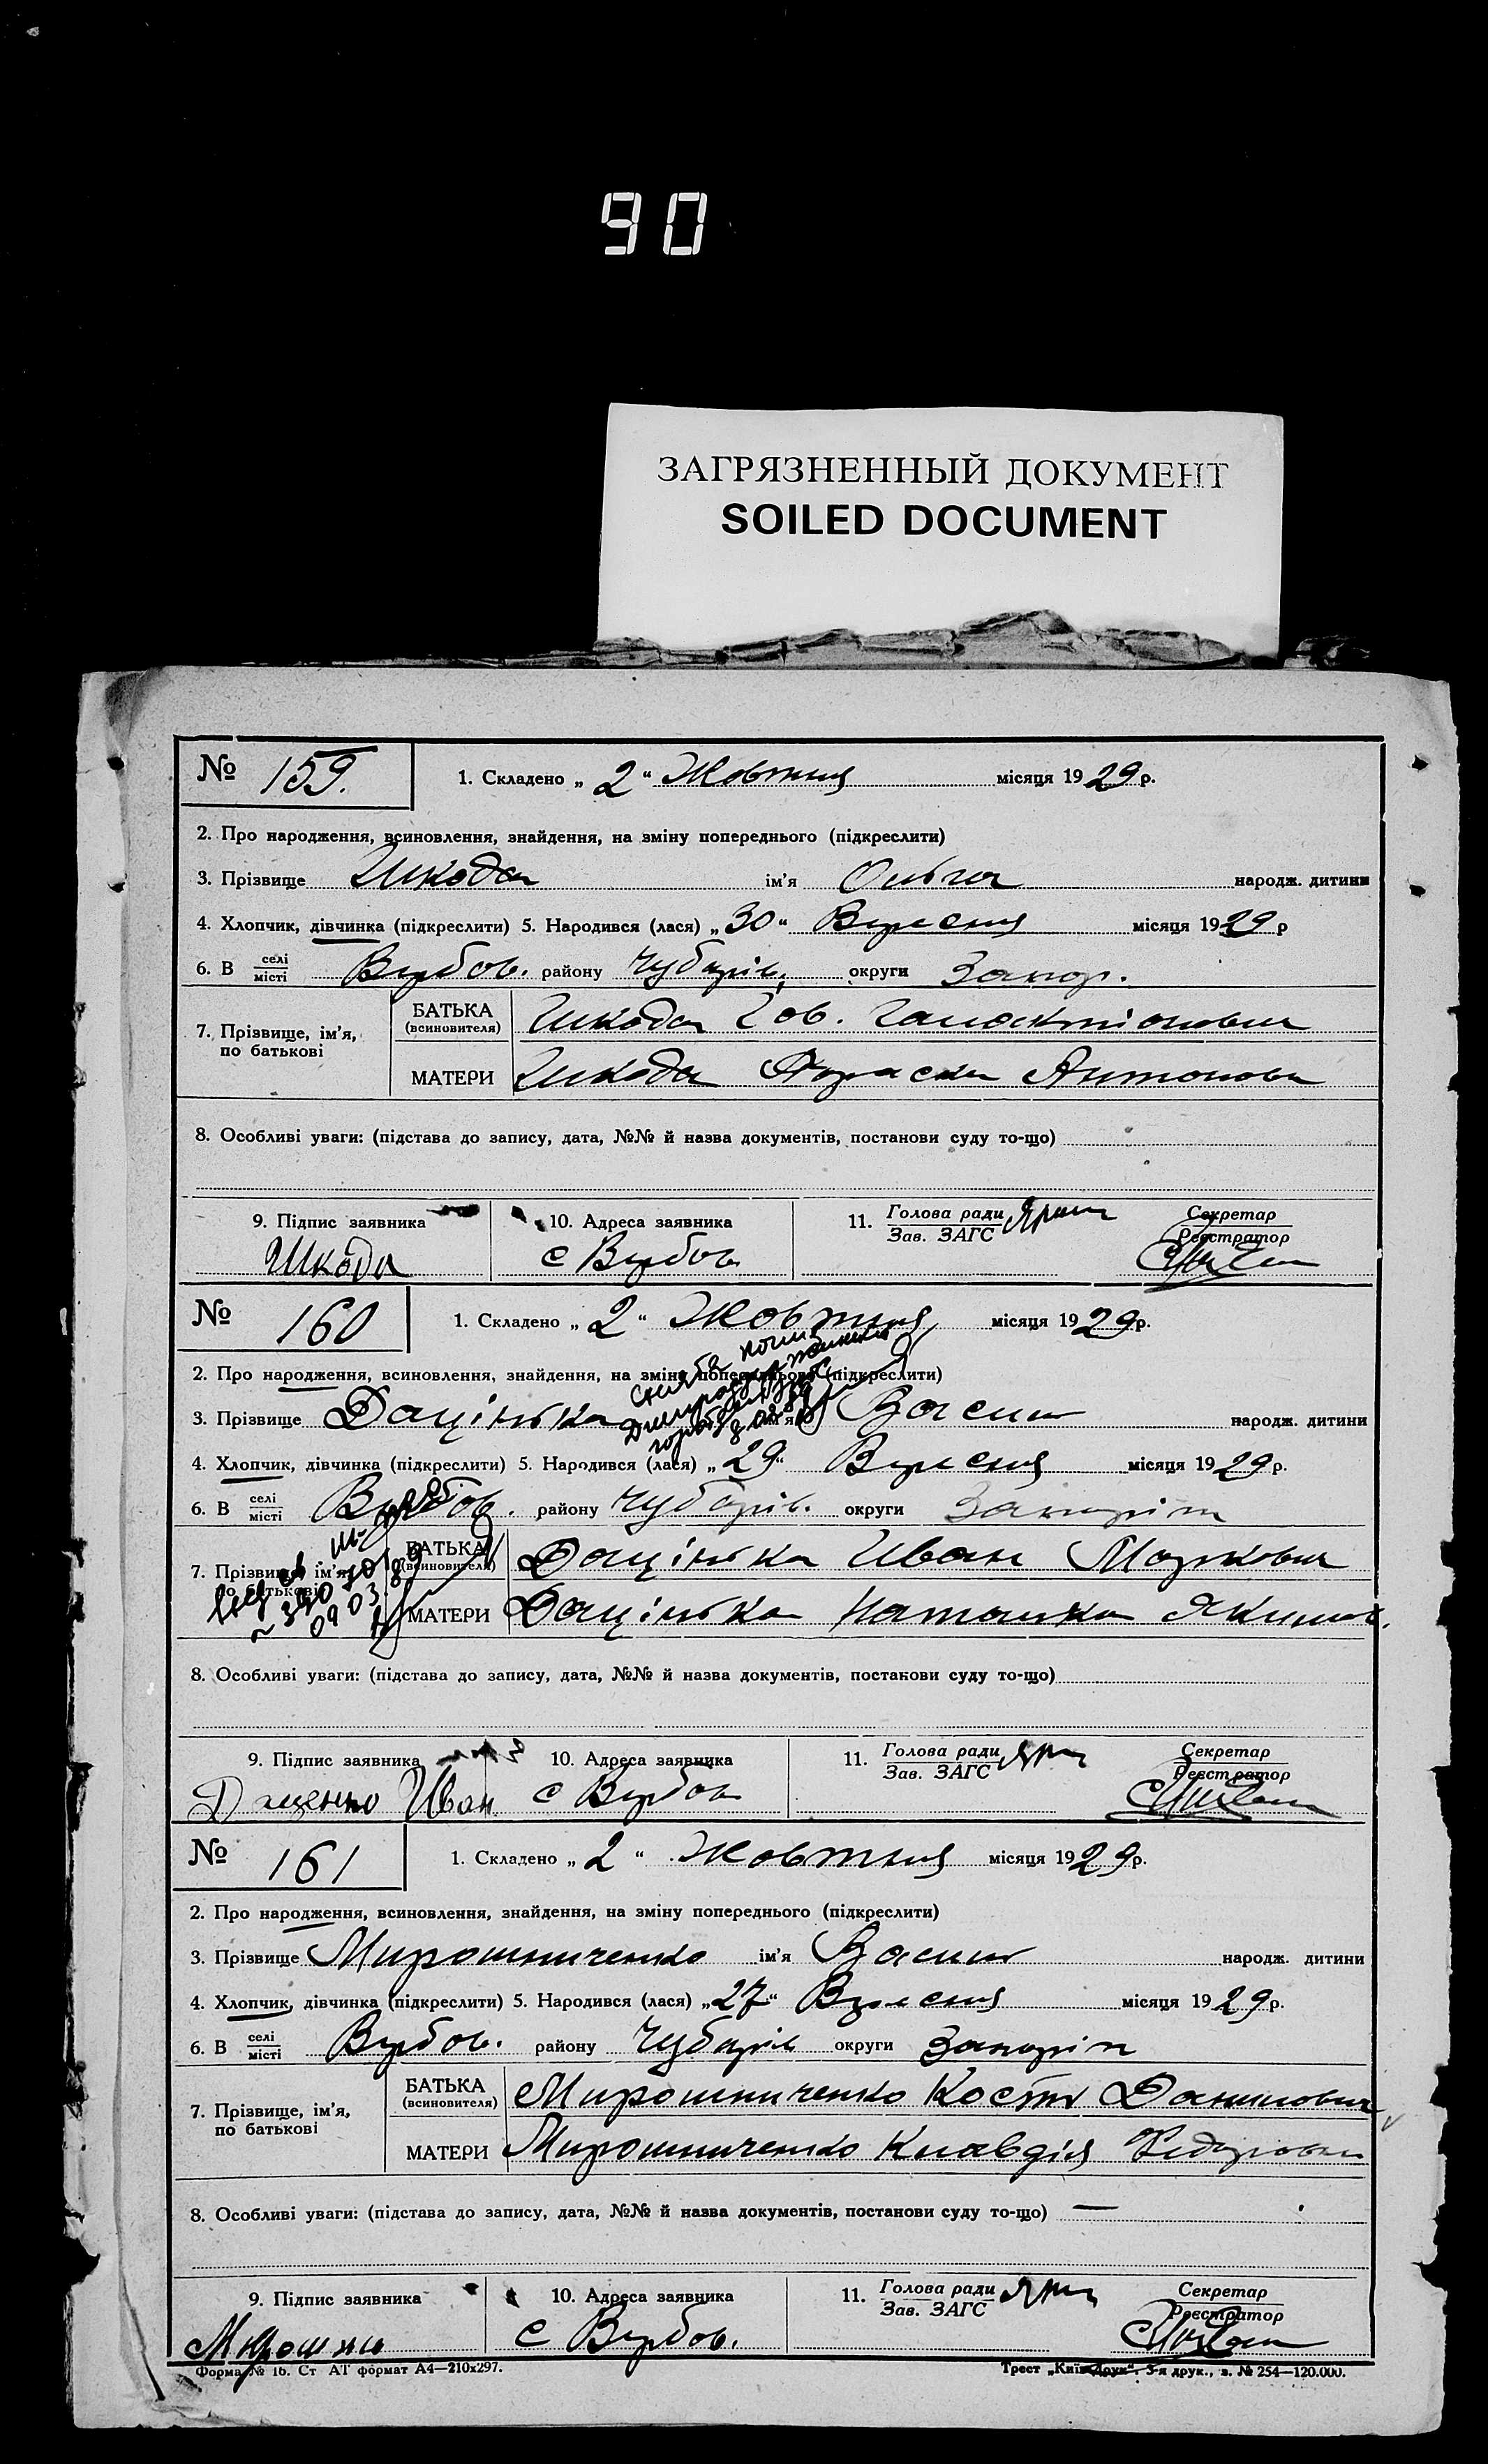 90
ЗАГРЯЗНЕННЫЙ ДОКУМЕНТ
SOILED DOCUMENT
№ 159. 1. Складено „ 2 “ Жовтня місяця 1929 р.
2. Про народження, всиновлення, знайдення, на зміну попереднього (підкреслити)
3. Прізвище Шкода ім'я Ольга народж. дитини
4. Хлопчик, дівчинка (підкреслити) 5. Народився (лася) „ 30 “ Вересня місяця 1929 р
6. В селі місті Вербов. району Чубарів. округи Запор.
7. Прізвище, ім'я, по батькові
БАТЬКА (всиновителя) Шкода Галактіонович
МАТЕРИ Шкода Параска Антонова
8. Особливі уваги: (підстава до запису, дата, №№ й назва документів, постанови суду то-що)
9. Підпис заявника 10. Адреса заявника 11. Голова ради Зав. ЗАГС Секретар Реєстратор
Шкода с Вербов
№ 160 1. Складено „ 2 “ Жовтня місяця 1929 р.
2. Про народження, всиновлення, знайдення, на зміну попереднього (підкреслити)
3. Прізвище Доцінька ім'я Васил народж. дитини
4. Хлопчик, дівчинка (підкреслити) 5. Народився (лася) „ 29 “ Вересня місяця 1929 р.
6. В селі місті Вербов. району Чубарів. округи Запоріж
7. Прізвище, ім'я, по батькові
БАТЬКА (всиновителя) Доцінька Иван Маркович
МАТЕРИ Доцінька Наталка Якимов.
8. Особливі уваги: (підстава до запису, дата, №№ й назва документів, постанови суду то-що)
9. Підпис заявника 10. Адреса заявника 11. Голова ради Зав. ЗАГС Секретар Реєстратор
Даценко Иван с Вербов
№ 161 1. Складено „ 2 “ Жовтня місяця 1929 р.
2. Про народження, всиновлення, знайдення, на зміну попереднього (підкреслити)
3. Прізвище Мирошниченко ім'я Васил народж. дитини
4. Хлопчик, дівчинка (підкреслити) 5. Народився (лася) „ 27 “ Вересня місяця 1929 р.
6. В селі місті Вербов. району Чубарів округи Запоріж
7. Прізвище, ім'я, по батькові
БАТЬКА (всиновителя) Мирошниченко Кость Данилович
МАТЕРИ Мирошниченко Клавдія Федоровн
8. Особливі уваги: (підстава до запису, дата, №№ й назва документів, постанови суду то-що) —
9. Підпис заявника 10. Адреса заявника 11. Голова ради Зав. ЗАГС Секретар Реєстратор
Мирошни с Вербов.
Форма № 1б. Ст АТ формат А4—210х297. Трест „Київ-Друк“. 3-я друк., з. № 254—120.000.